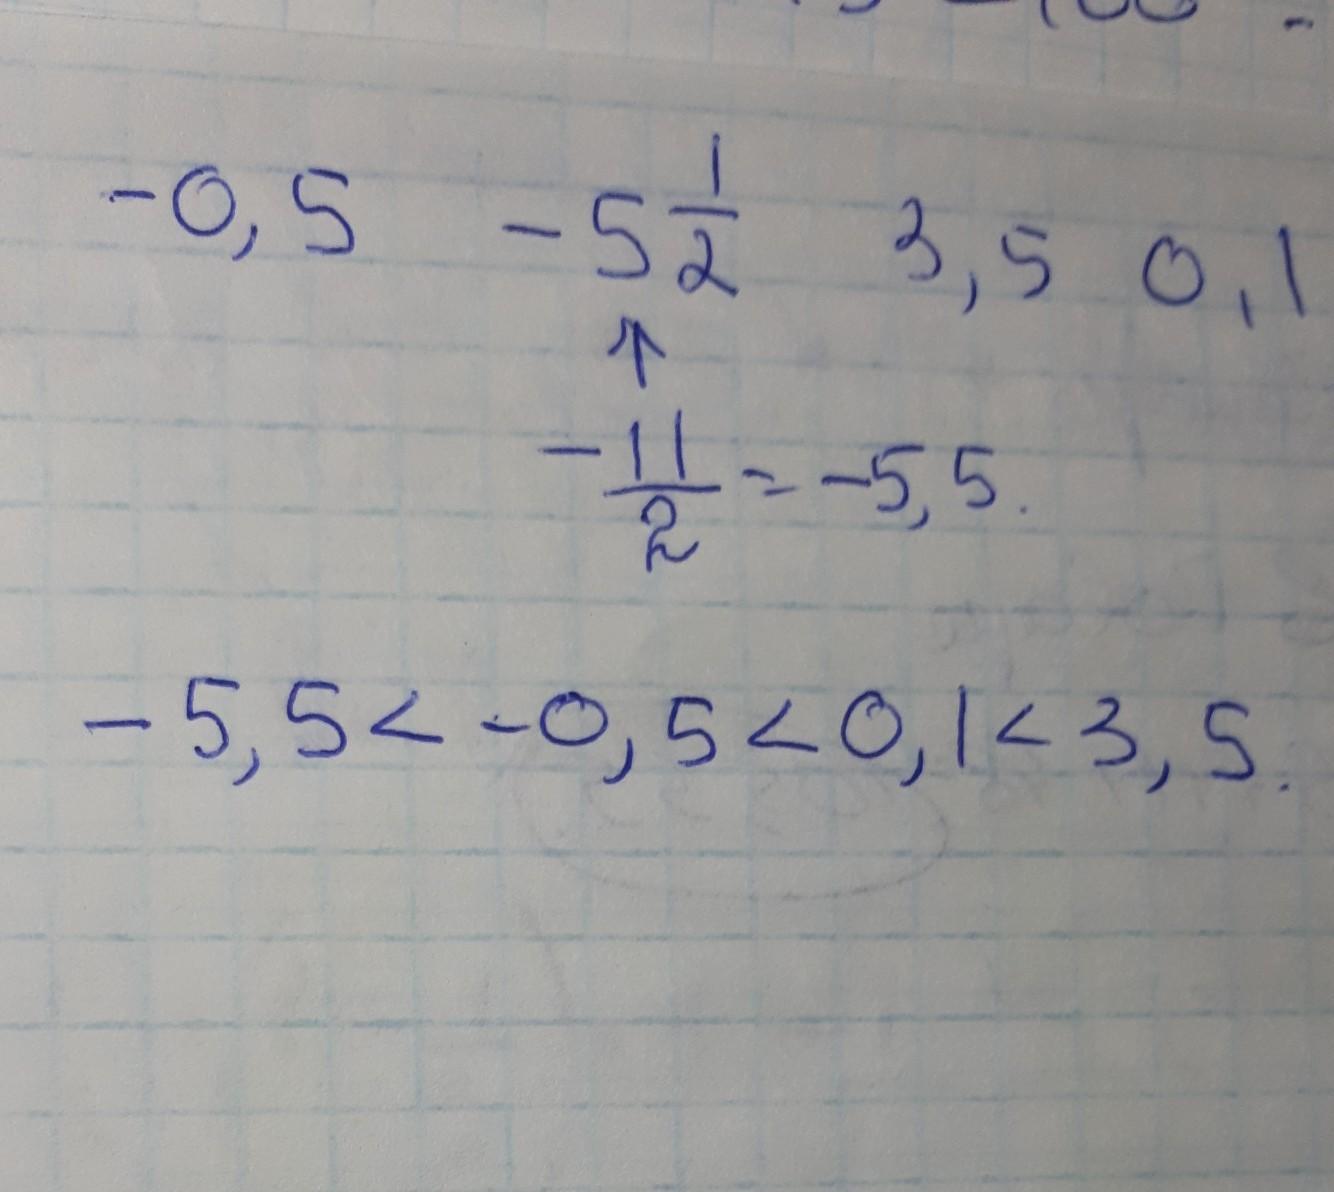 -0,5 -5 1/2 3,5 0,1
↑
-11/2 = -5,5.
-5,5 < -0,5 < 0,1 < 3,5.